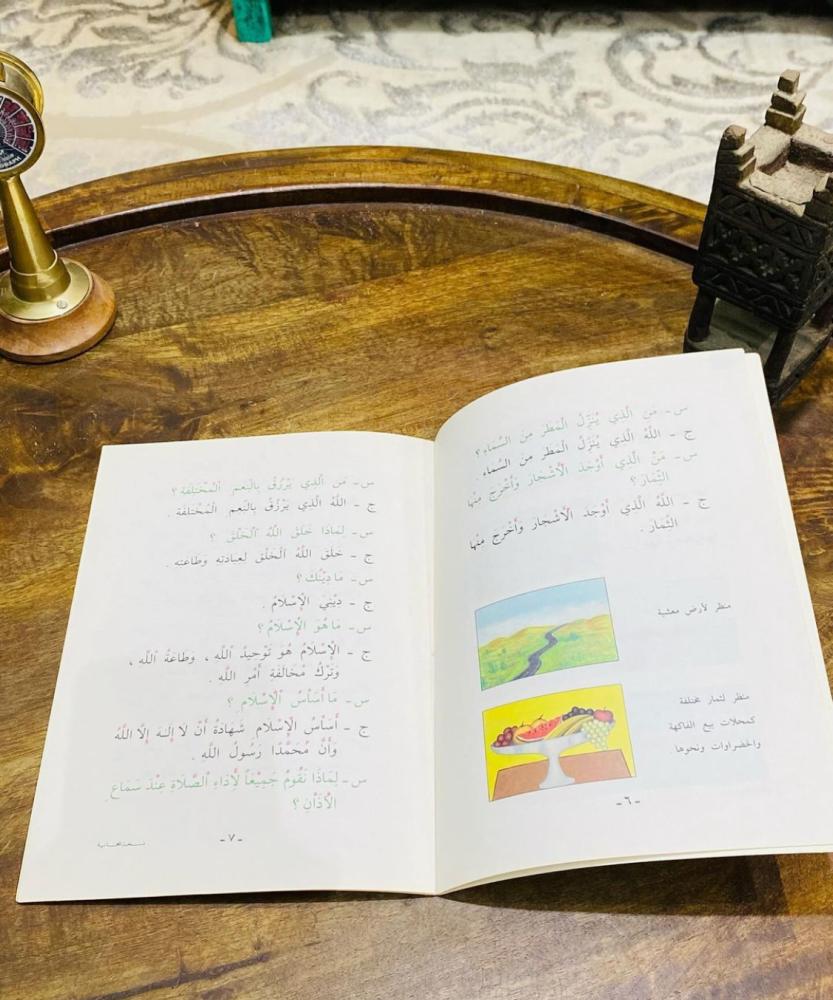 س - مَنِ الَّذِي يُنَزِّلُ الْمَطَرَ مِنَ السَّمَاءِ ؟
ج - اللَّهُ الَّذِي يُنَزِّلُ الْمَطَرَ مِنَ السَّمَاءِ .
س - مَنْ الَّذِي أَوْجَدَ الْأَشْجَارَ وَأَخْرَجَ مِنْهَا
الثِّمَارَ ؟
ج - اللَّهُ الَّذِي أَوْجَدَ الْأَشْجَارَ وَأَخْرَجَ مِنْهَا
الثِّمَارَ .
منظر لأرض معشبة
منظر لثمار مختلفة
كمحلات بيع الفاكهة
والخضراوات ونحوها
- ٦ -
س - مَنِ الَّذِي يَرْزُقُ بِالنِّعَمِ الْمُخْتَلِفَةِ ؟
ج - اللَّهُ الَّذِي يَرْزُقُ بِالنِّعَمِ الْمُخْتَلِفَةِ .
س - لِمَاذَا خَلَقَ اللَّهُ الْخَلْقَ ؟
ج - خَلَقَ اللَّهُ الْخَلْقَ لِعِبَادَتِهِ وَطَاعَتِهِ .
س - مَا دِيْنُكَ ؟
ج - دِيْنِيَ الْإِسْلَامُ .
س - مَا هُوَ الْإِسْلَامُ ؟
ج - الْإِسْلَامُ هُوَ تَوْحِيدُ اللَّهِ ، وَطَاعَةُ اللَّهِ ،
وَتَرْكُ مُخَالَفَةِ أَمْرِ اللَّهِ .
س - مَا أَسَاسُ الْإِسْلَامِ ؟
ج - أَسَاسُ الْإِسْلَامِ شَهَادَةُ أَنْ لَا إِلَهَ إِلَّا اللَّهُ
وَأَنَّ مُحَمَّدًا رَسُولُ اللَّهِ .
س - لِمَاذَا نَقُومُ جَمِيْعًا لِأَدَاءِ الصَّلَاةِ عِنْدَ سَمَاعِ
الْأَذَانِ ؟
- ٧ -